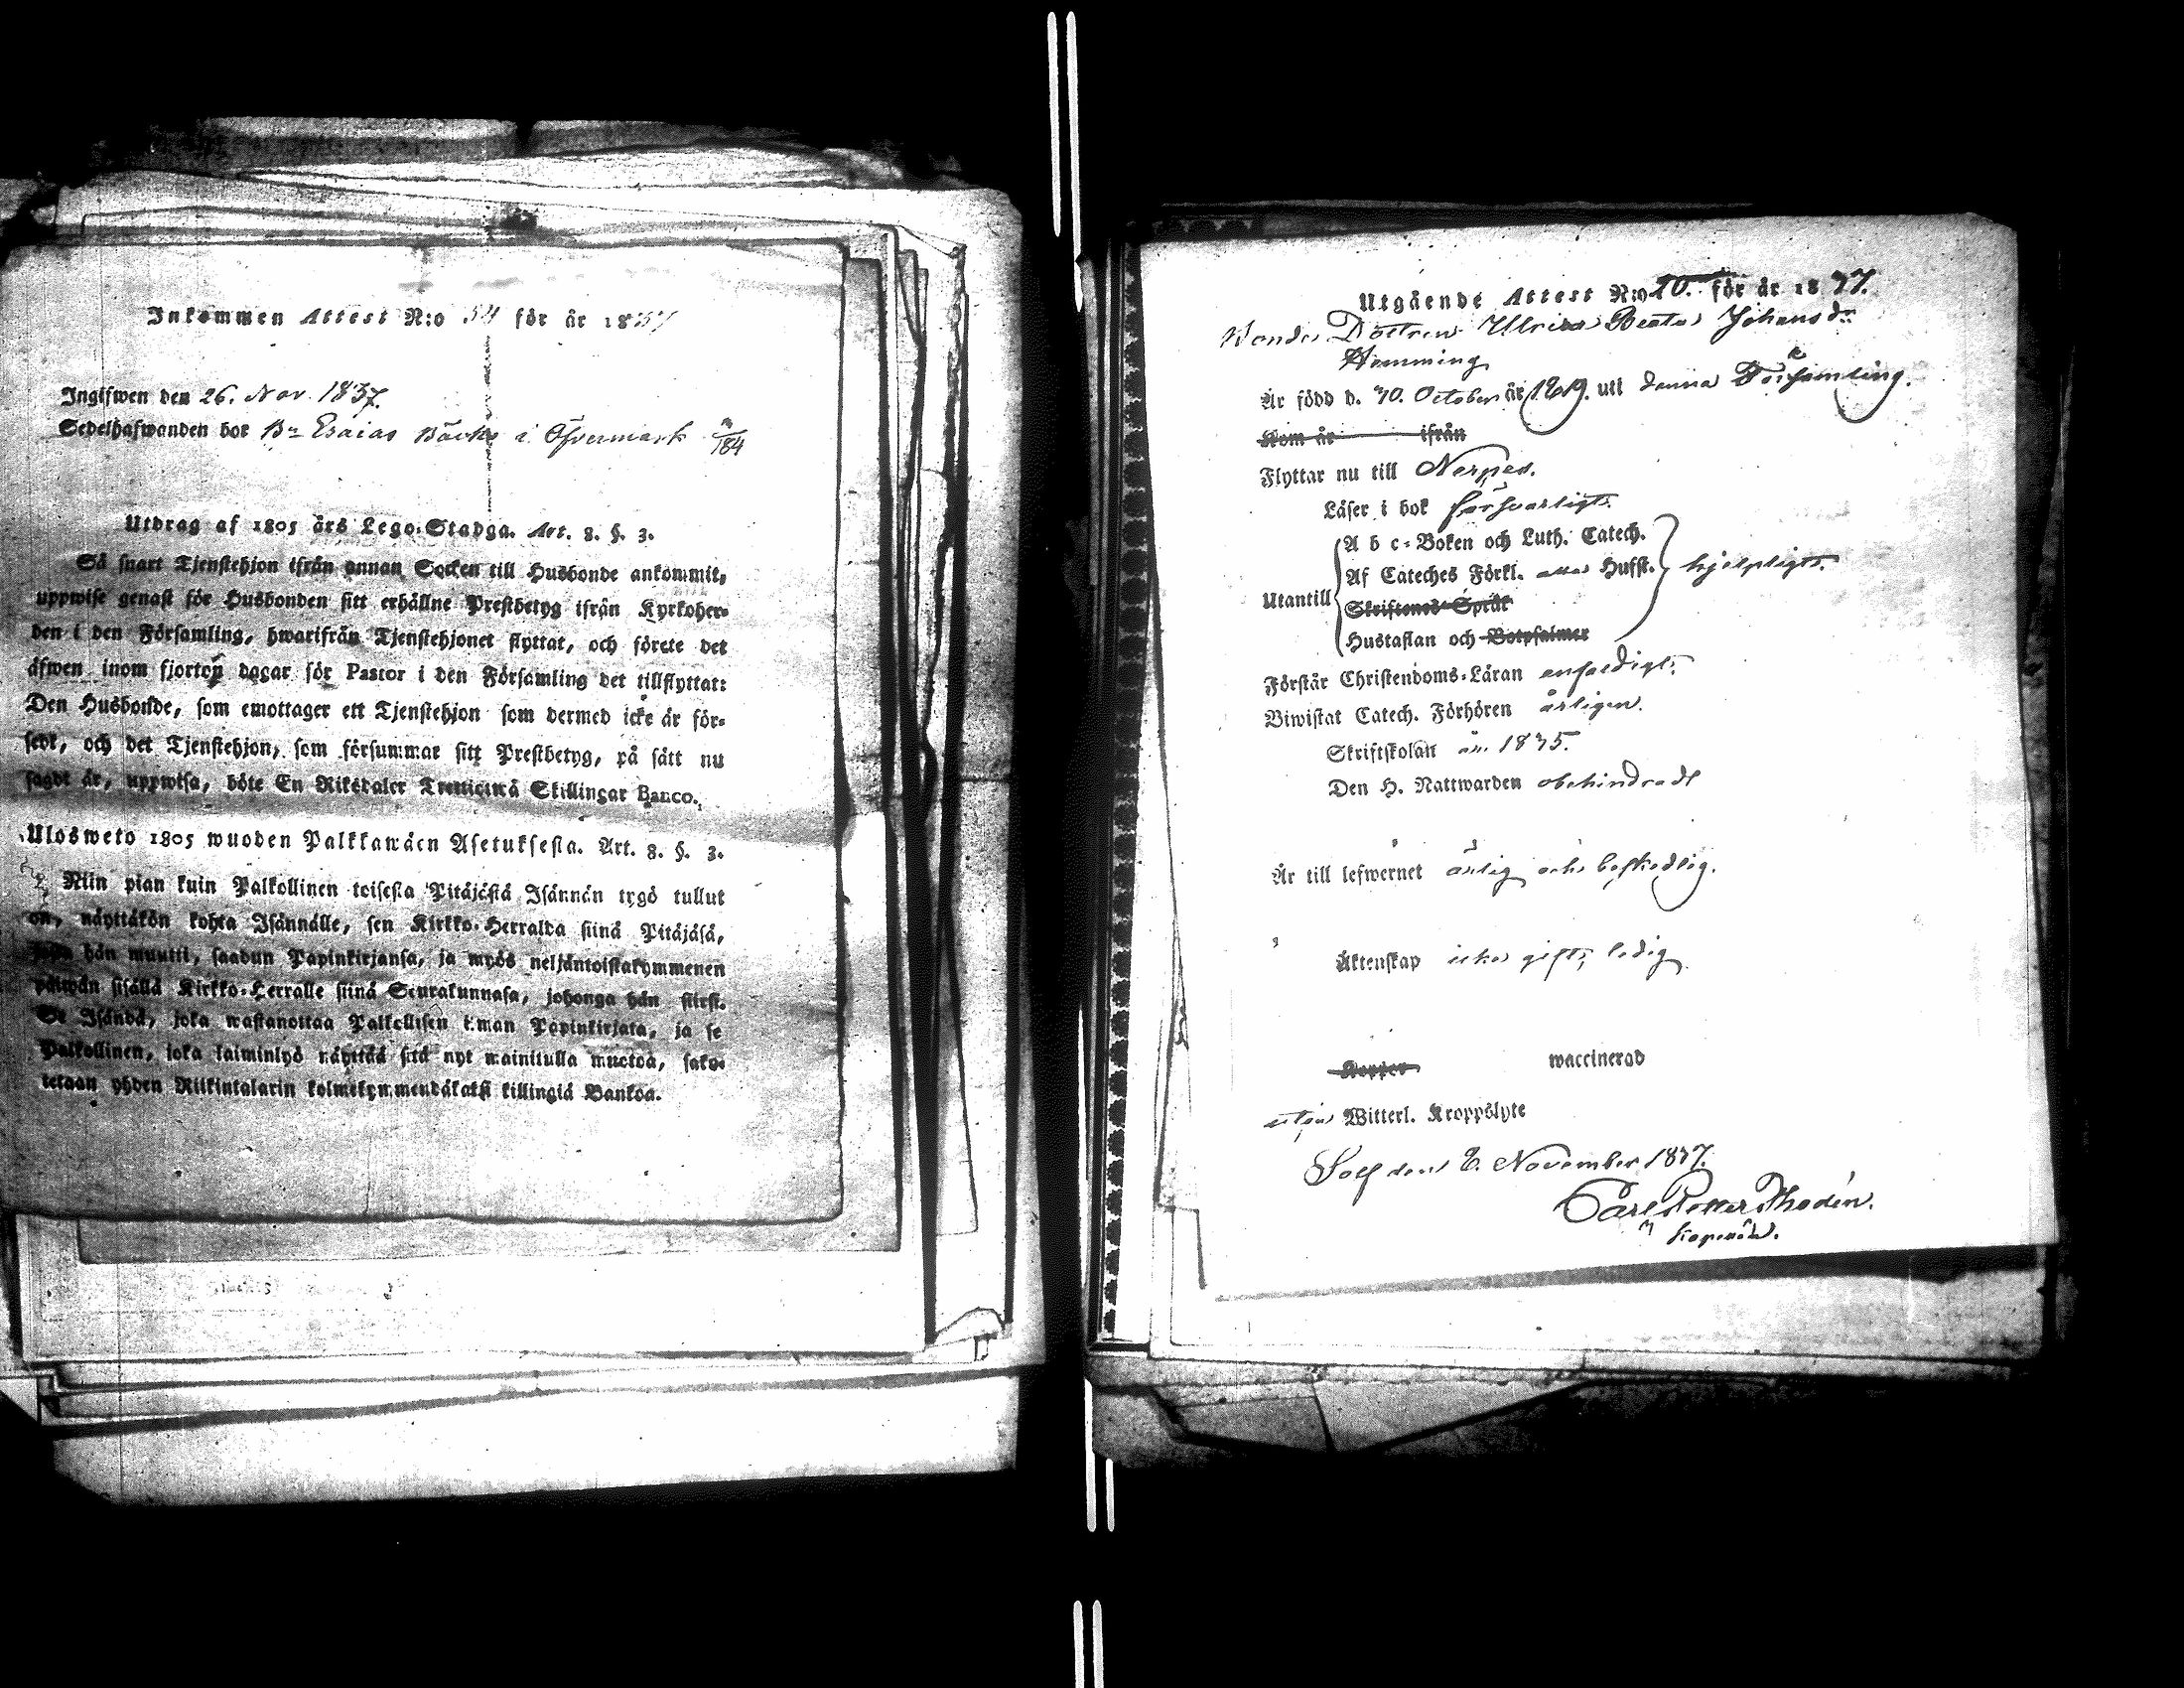 Inkommen Attest N:o 54 för år 1837
Ingifwen den 26. Nov. 1837.
Sedelhafwanden bor Bn Esaias Bäck i Öfvermark 184
Utdrag af 1805 års Lego-Stadga. Art. 8. §. 3.
Så snart Tjenstehjon ifrån annan Socken till Husbonde ankommit,
uppwise genast för Husbonden sitt erhållne Prestbetyg ifrån Kyrkoher-
den i den Församling, hwarifrån Tjenstehjonet flyttat, och förete det
äfwen inom fjorton dagar för Pastor i den Församling det tillflyttat:
Den Husbonde, som emottager ett Tjenstehjon som dermed icke är för-
sedt, och det Tjenstehjon, som försummar sitt Prestbetyg, på sätt nu
sagdt är, uppwisa, böte En Riksdaler Trettiotwå Skillingar Banco.
Ulosweto 1805 wuoden Palkkawäen Asetuksesta. Art. 8. §. 3.
Niin pian kuin Palkollinen toisesta Pitäjästä Isännän tygö tullut
on, näyttäkön kohta Isännälle, sen Kirkko-Herralda siinä Pitäjäsä,
josta hän muutti, saadun Papinkirjansa, ja myös neljäntoistakymmenen
päiwän sisällä Kirkko-Herralle siinä Seurakunnasa, johonga hän siirsi.
Se Isändä, joka wastanottaa Palkollisen ilman Papinkirjata, ja se
Palkollinen, joka laiminlyö näyttää sitä nyt mainitulla muotoa, sako-
tetaan yhden Riikintalarin kolmekymmendäkaksi killingiä Bankoa.
Utgående Attest N:o 20. för år 1837.
Bonde Dottren Ulrica Beata Johansdr
Hemming
Är född d. 30. October år 1819. uti denna Församling.
Kom år ifrån
Flyttar nu till Nerpes.
Läser i bok försvarligt.
A b c-Boken och Luth. Catech.
Af Cateches Förkl. Husst. hjelpligt.
Utantill
Skriftenes Språk
Hustaflan och Botpsalmer
Förstår Christendoms-Läran enfaldigt.
Biwistat Catech. Förhören årligen.
Skriftskolan år 1835.
Den H. Nattwarden obehindradt
Är till lefwernet ärlig och beskedlig.
Äktenskap icke gift, ledig
Koppor waccinerad
utan Witterl. Kroppslyte
Solf den 8. November 1837.
Carl Petter Thodén.